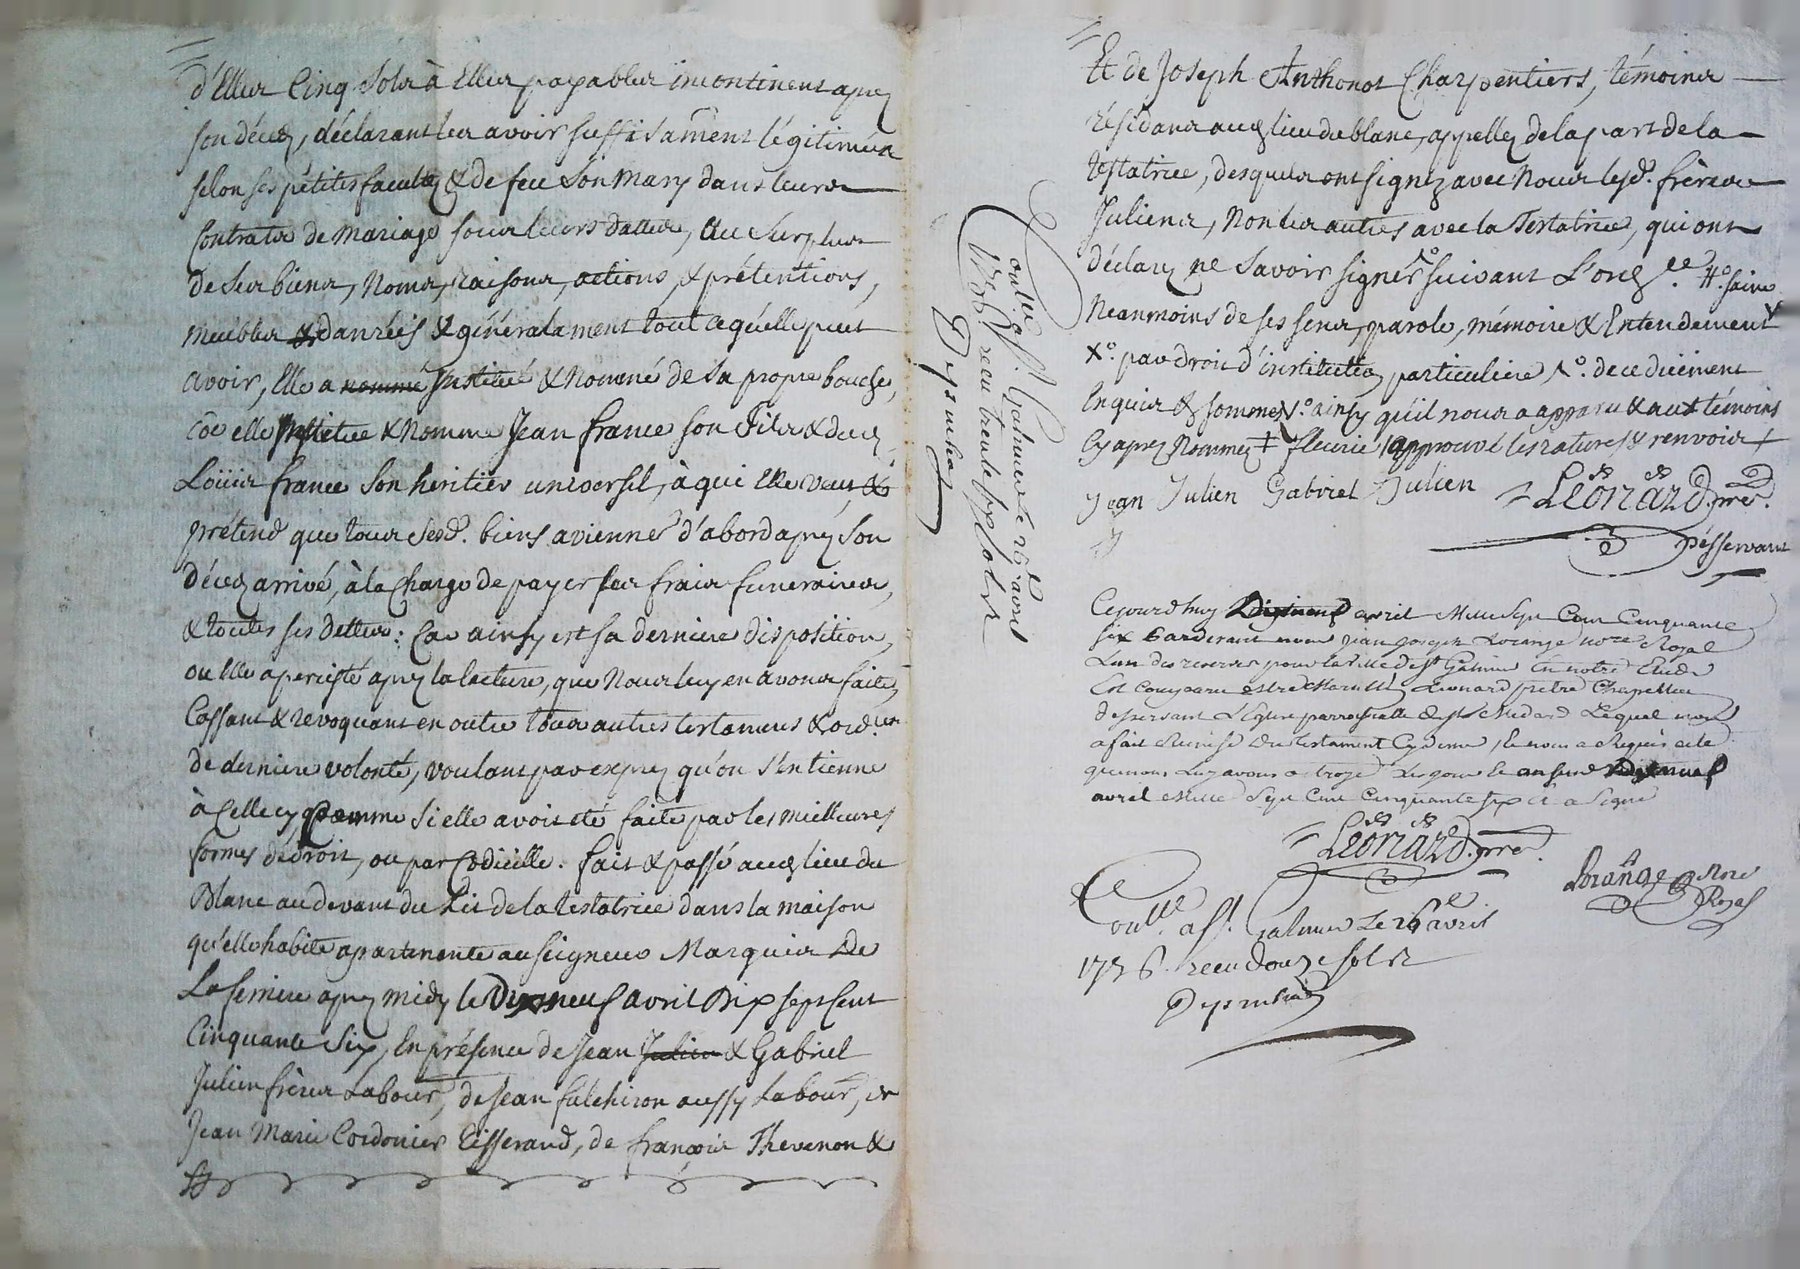 d'Elles Cinq sols à Elles payables incontinent apres
son décez, déclarant les avoir suffisament légitimées
selon ses pétites facultez & de feu son Mary dans leurs
Contrats de Mariage sous leurs dattes, Au Surplus
de ses biens, Noms, raisons, actions, & prétentions,
meubles & danrées & généralament tout ce qu'elle peut
avoir, Elle a nommé Institué & Nommé de sa propre bouche,
côe elle Institue & Nomme Jean france son Fils & dud.
Loüis france son héritier universel, à qui Elle veut &
prétend que tous sesd. biens aviennet d'abord apres son
décez arrivé, à la Charge de payer ses frais funeraires,
& toutes ses Dettes: Car ainsy est sa derniere disposition,
ou Elle a persisté apres la lecture, que Nous luy en avons faite,
Cassant & revoquant en outre tous autres testamens & ord.ces
de derniere volonté, voulant par exprez qu'on s'en tienne
à Celle cy comme si elle avoit été faite par les meilleures
formes de droit, ou par Codicille. fait & passé aud. lieu du
Blanc au devant du Lit de la testatrice dans la maison
qu'elle habite apartenente au seigneur Marquis De
La ferriere apres midy le Dixneuf avril Dix sept Cent
Cinquante Six, En présence de Jean Julien & Gabriel
Julien frères Labour.rs, de Jean falchiron aussy Labour.r, de
Jean Marie Cordonier Tisserand, de françois Thevenon &
Et de Joseph Anthonot Charpentiers, témoins
résidans aud. lieu du blanc, appellez de la part de la
testatrice, desquels ont signez avec Nous lesd. frères
Juliens, Non les autres avec la Testatrice, qui ont
déclaré ne savoir signer suivant L'ord.ce
Neanmoins de ses sens, parole, mémoire & Entendement
par droit d'institution particuliere de ce dûement
Enquis & sommez ainsy qu'il nous a apparu & aux témoins
Cy apres Nommez fleurie approuvé les ratures & renvois
Jean Julien Gabriel Julien Léonard ptre.
Desservant
Cejourdhuy Dixneuf avril Mille Sept Cent Cinquante
six Pardevant nous Jean Joseph Lorange no.re Royal
L'un des reservés pour la ville de St Galmier En notre Etude
Est Comparu M.re Léonard prêtre Chapellain
desservant L'église parroissialle de St Medard Lequel nous
a fait Remise Du testament Cy dessus, & nous a Requis acte
que nous Luy avons octroyé
avril Mille Sept Cent Cinquante six Et a Signé
Léonard ptre.
Lorange No.re
Royal
Conll.é a St. Galmier Le 26e avril
1756. receu douze sols
Desruhes
Conll.é a St. Galmier Le 26e avril
1756 receu trente six sols
Desruhes